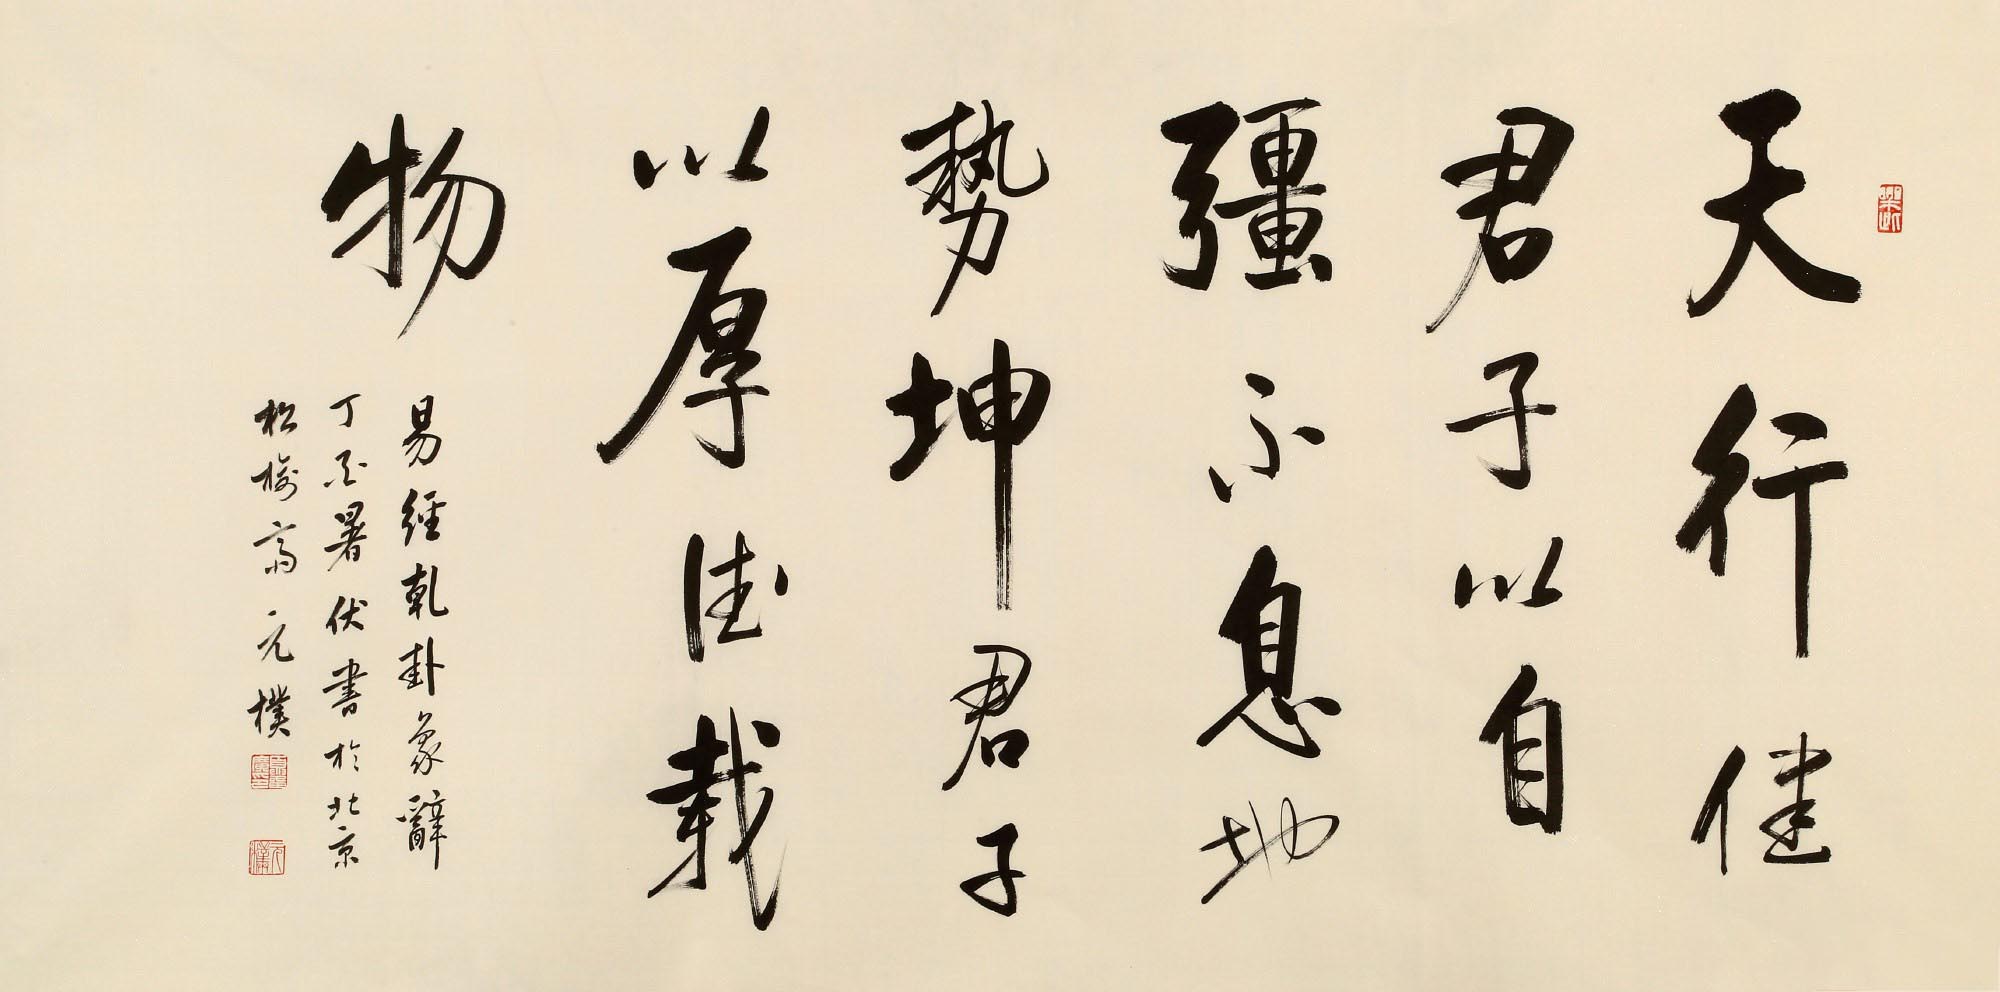 天行健
君子以自
彊不息地
勢坤君子
以厚德載
物
易經乾卦象辭
丁亥暑伏書於北京
松樹齋元樸